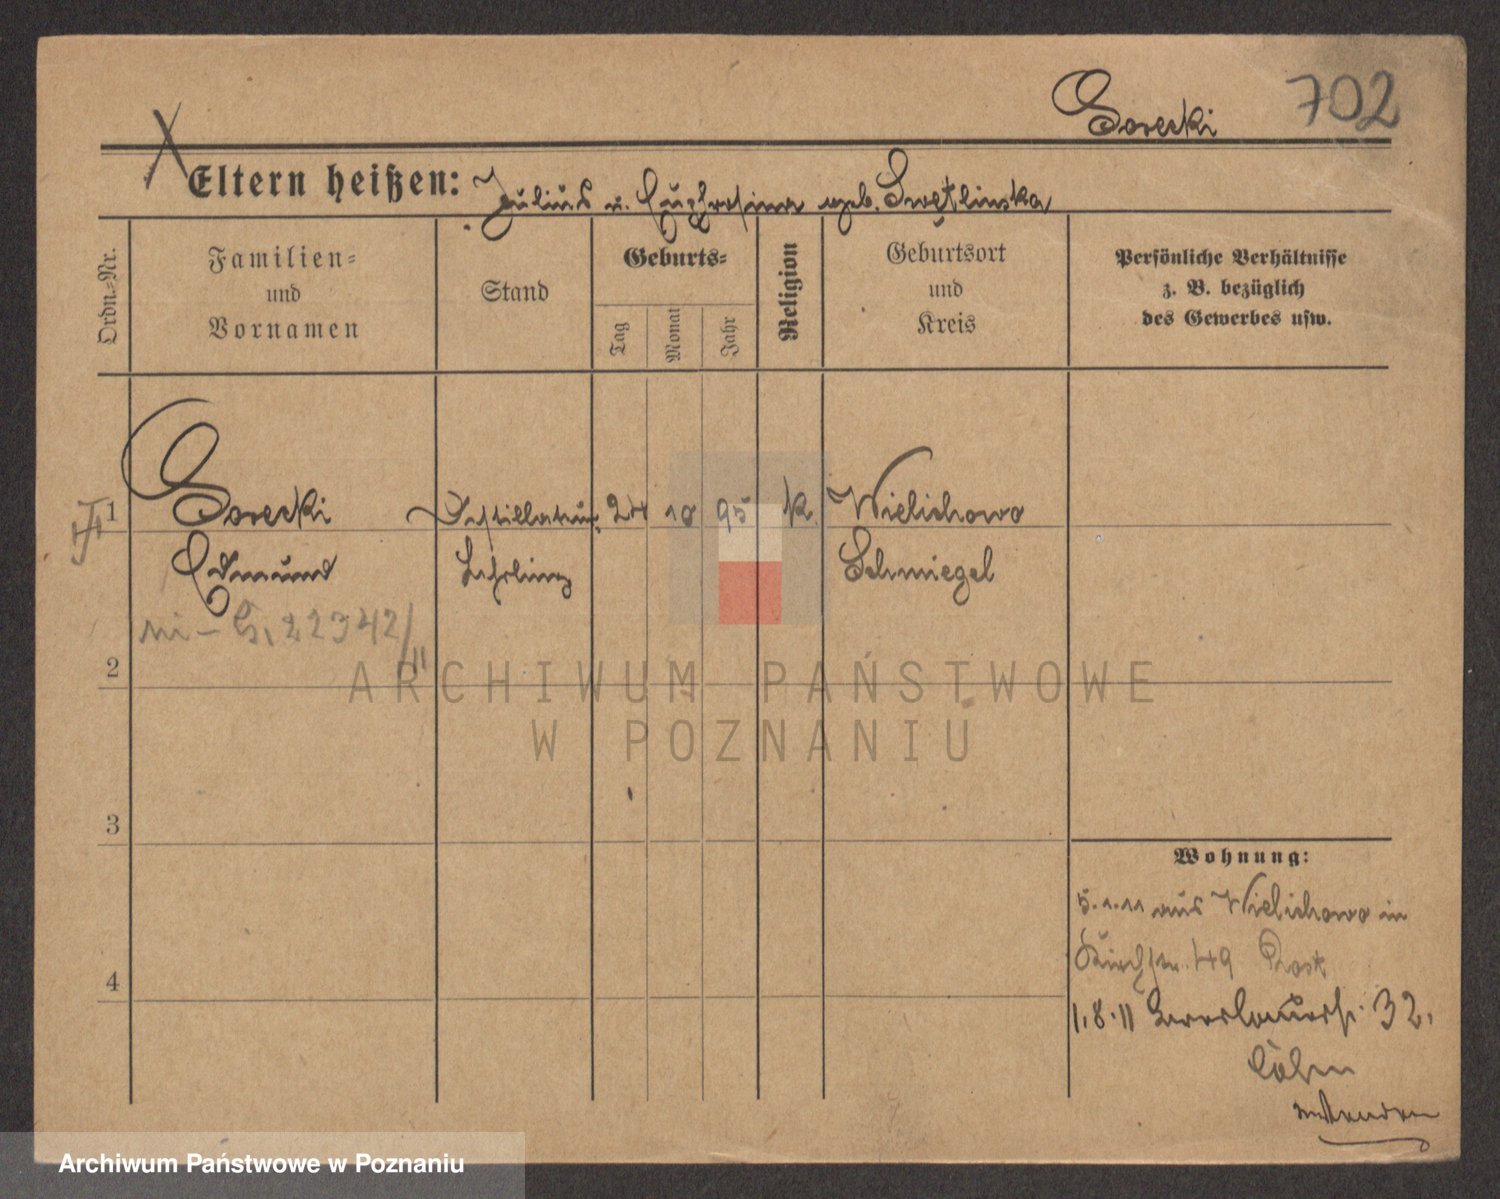 Gorecki 702
X
Eltern heißen: Julius u. Euphrosina geb. Swętlinska
Ordn.-Nr.
Familien-
und
Vornamen
Stand
Geburts-
Tag
Monat
Jahr
Religion
Geburtsort
und
Kreis
Persönliche Verhältnisse
z. B. bezüglich
des Gewerbes usw.
1 Gorecki Destillateur 24 10 95 k. Wielichowo
Edmund Lehrling Schmiegel
ni - G. 22342/11
2
3
4
Wohnung:
5.1.11 aus Wielichowo in
Kirchstr. 49 Post
1.8.11 32.
ARCHIWUM PAŃSTWOWE
W POZNANIU
Archiwum Państwowe w Poznaniu